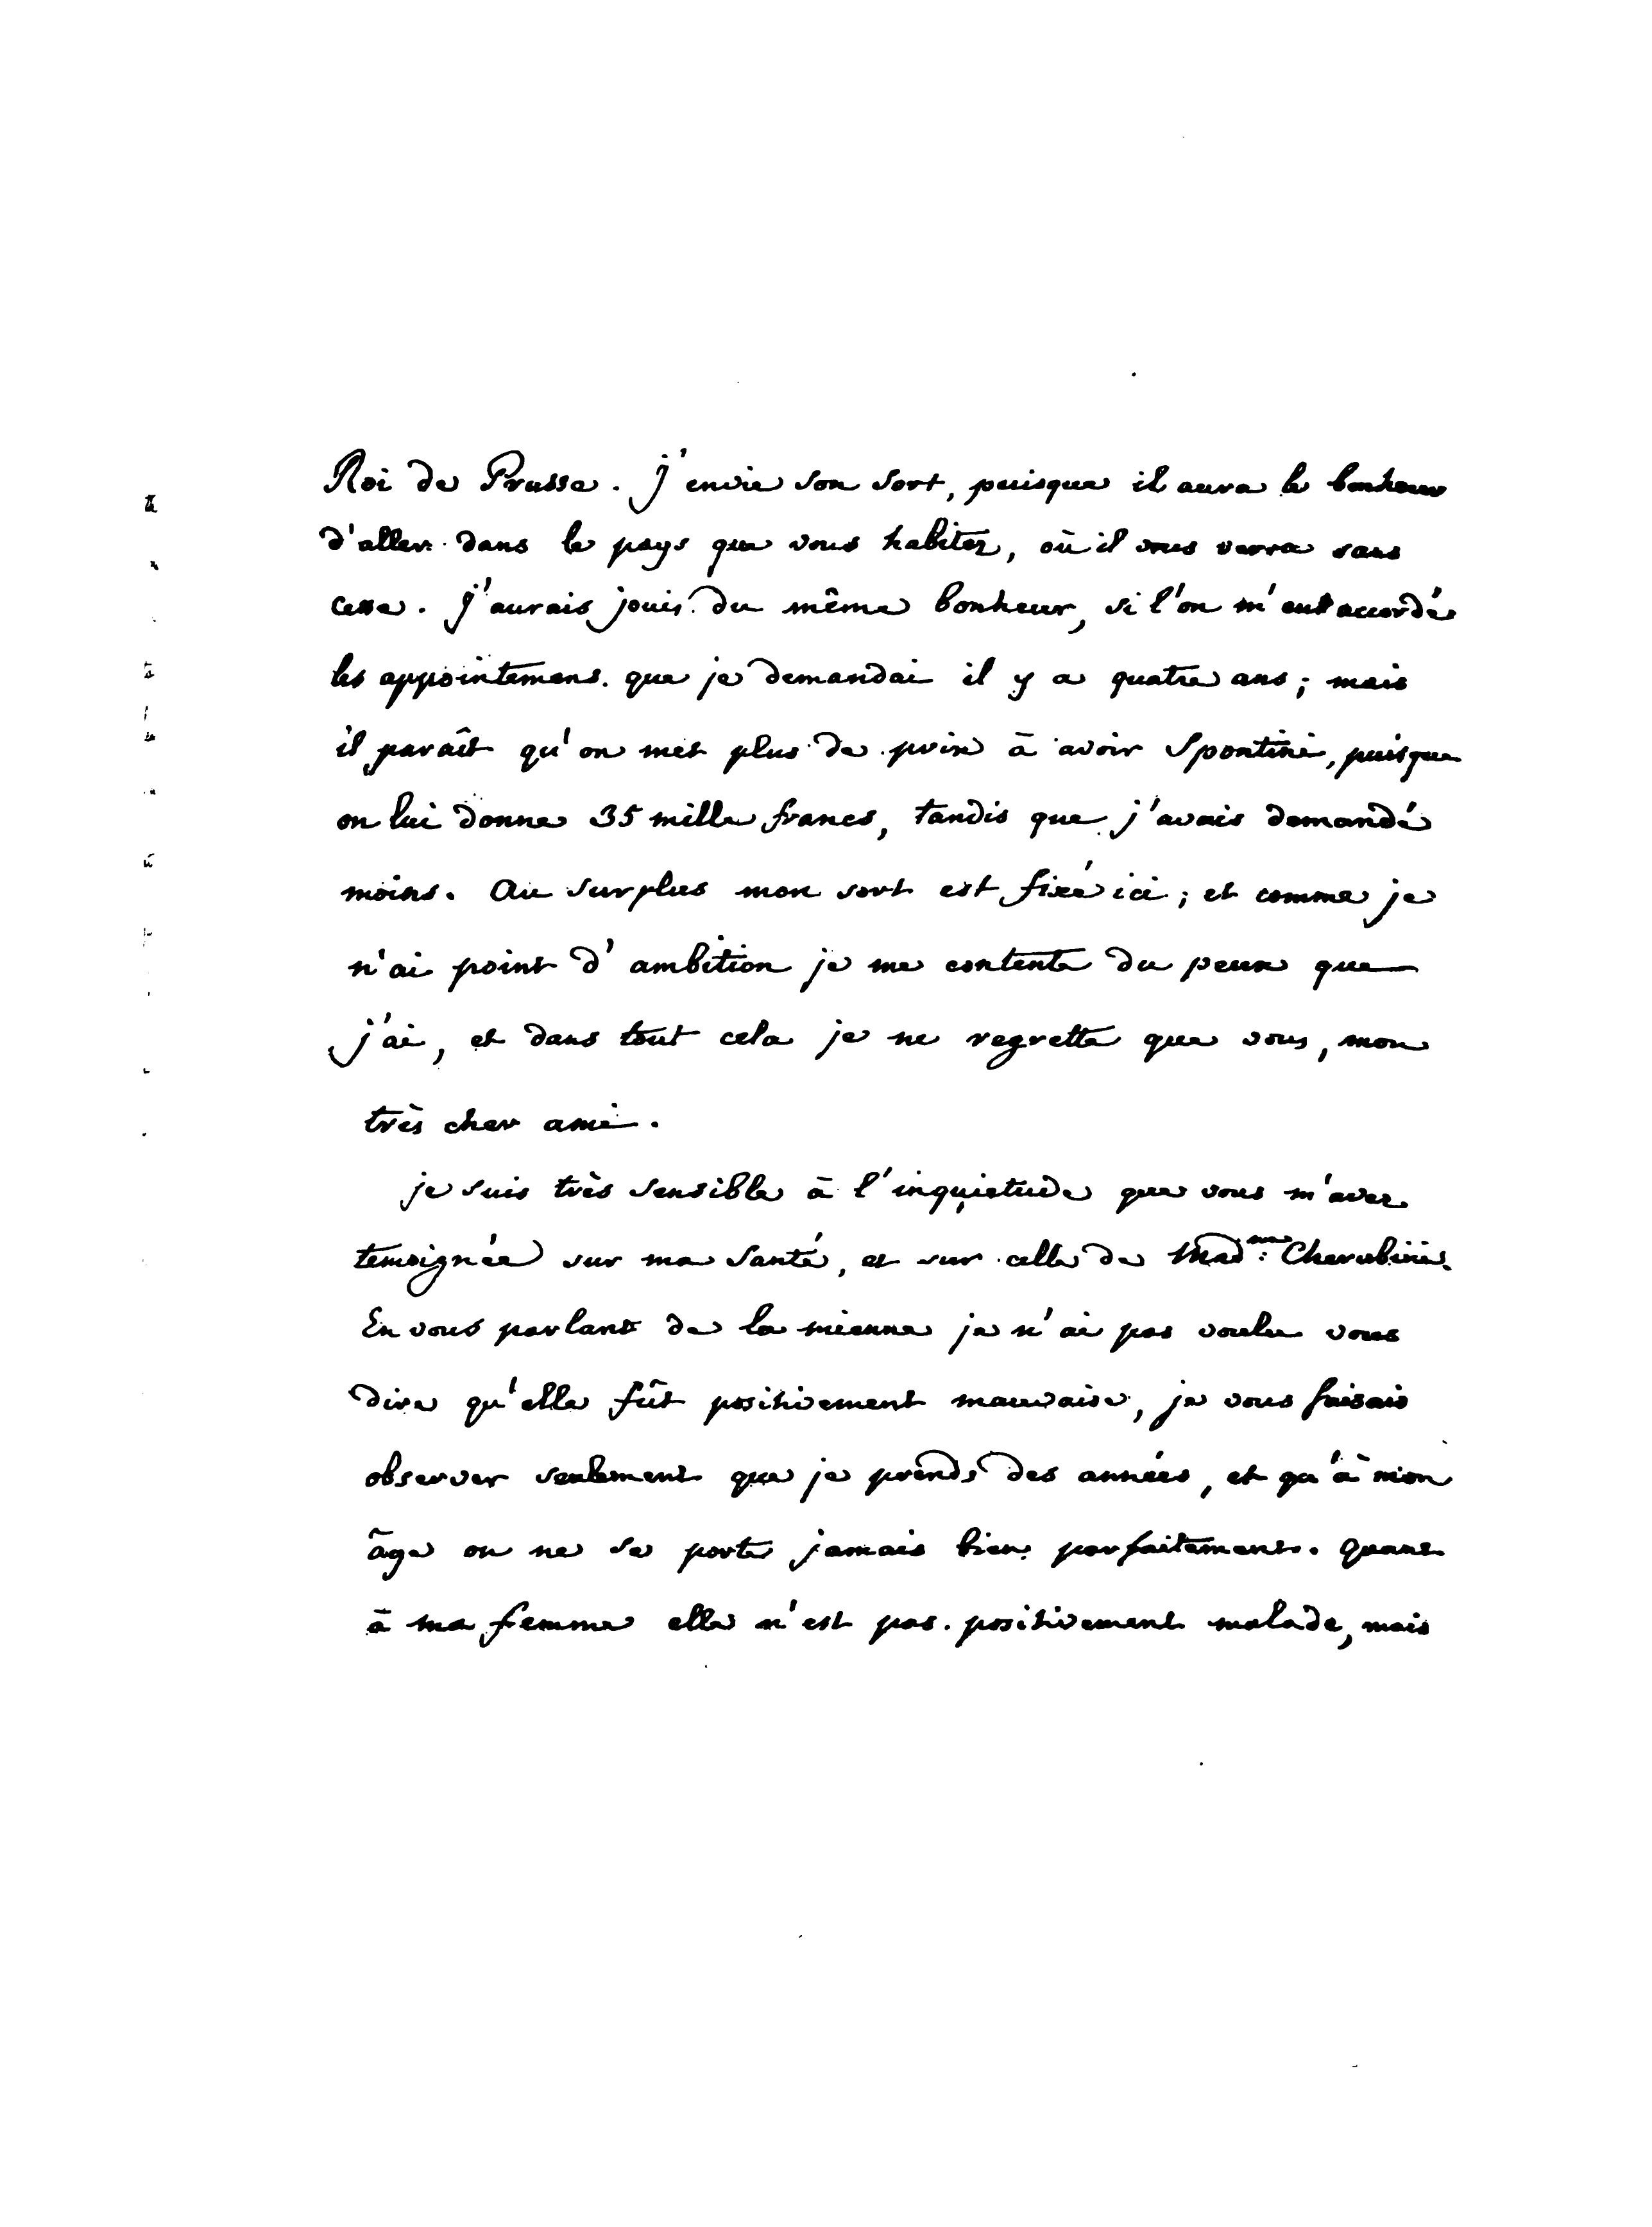 Roi de Prusse. J'envie son sort, puisque il aura le bonheur
d'aller dans le pays que vous habitez, où il vous verra sans
cesse. J'aurais jouis du même bonheur, si l'on m'eut accordés
les appointemens que je demandai il y a quatre ans; mais
il paraît qu'on met plus de prix à avoir Spontini, puisque
on lui donne 35 mille francs, tandis que j'avais demandé
moins. Au surplus mon sort est fixé ici; et comme je
n'ai point d'ambition je me contente du peux que
j'ai, et dans tout cela je ne regrette que vous, mon
très cher ami.
je suis très sensible à l'inquietude que vous m'avez
temoignée sur ma santé, et sur celle de Mad.me Cherubini.
En vous parlant de la mienne je n'ai pas voulu vous
dire qu'elle fût positivement mauvaise, je vous faisais
observer seulement que je prends des années, et qu'à mon
âge on ne se porte jamais bien parfaitement. quant
à ma femme elle n'est pas positivement malade, mais